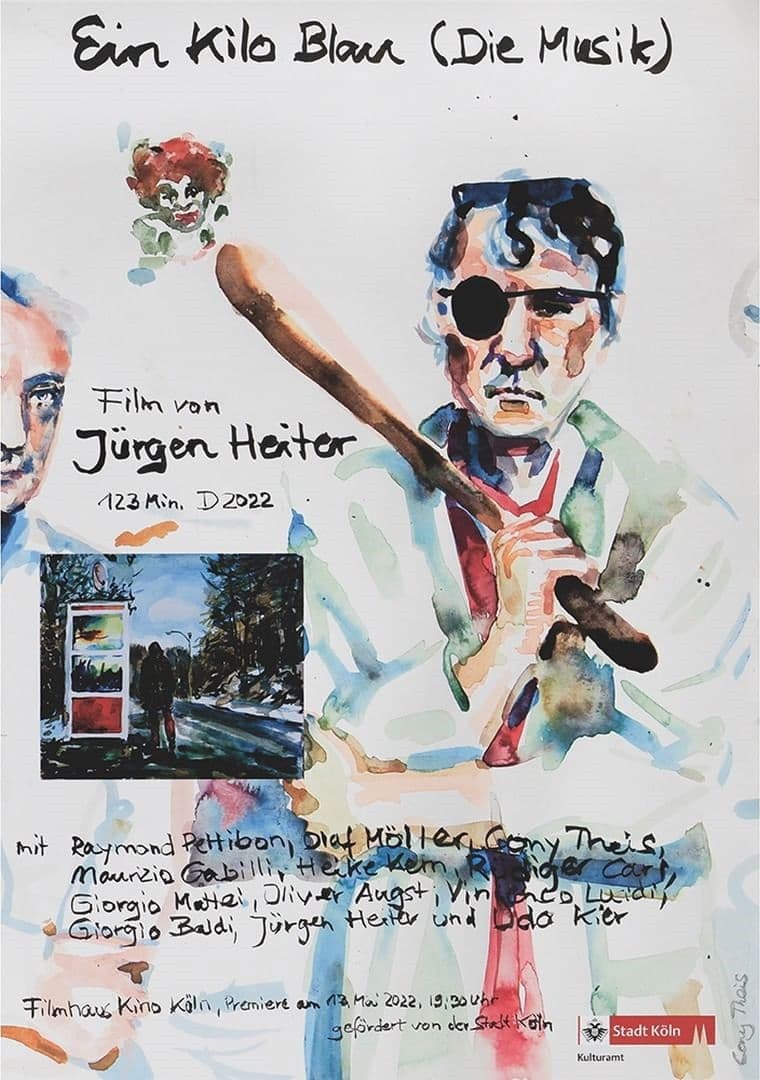 Ein Kilo Blau (Die Musik)
Film von
Jürgen Heiter
123 Min. D 2022
mit Raymond Pettibon, Olaf Möller, Cony Theis,
Maurizio Gabilli, Heike Kern, Rüdiger Carl,
Giorgio Mattei, Oliver Augst, Vincenzo Luidi,
Giorgio Baldi, Jürgen Heiter und Udo Kier
Filmhaus Kino Köln, Premiere am 13. Mai 2022, 19,30 Uhr
gefördert von der Stadt Köln
Stadt Köln
Kulturamt
Cony Theis